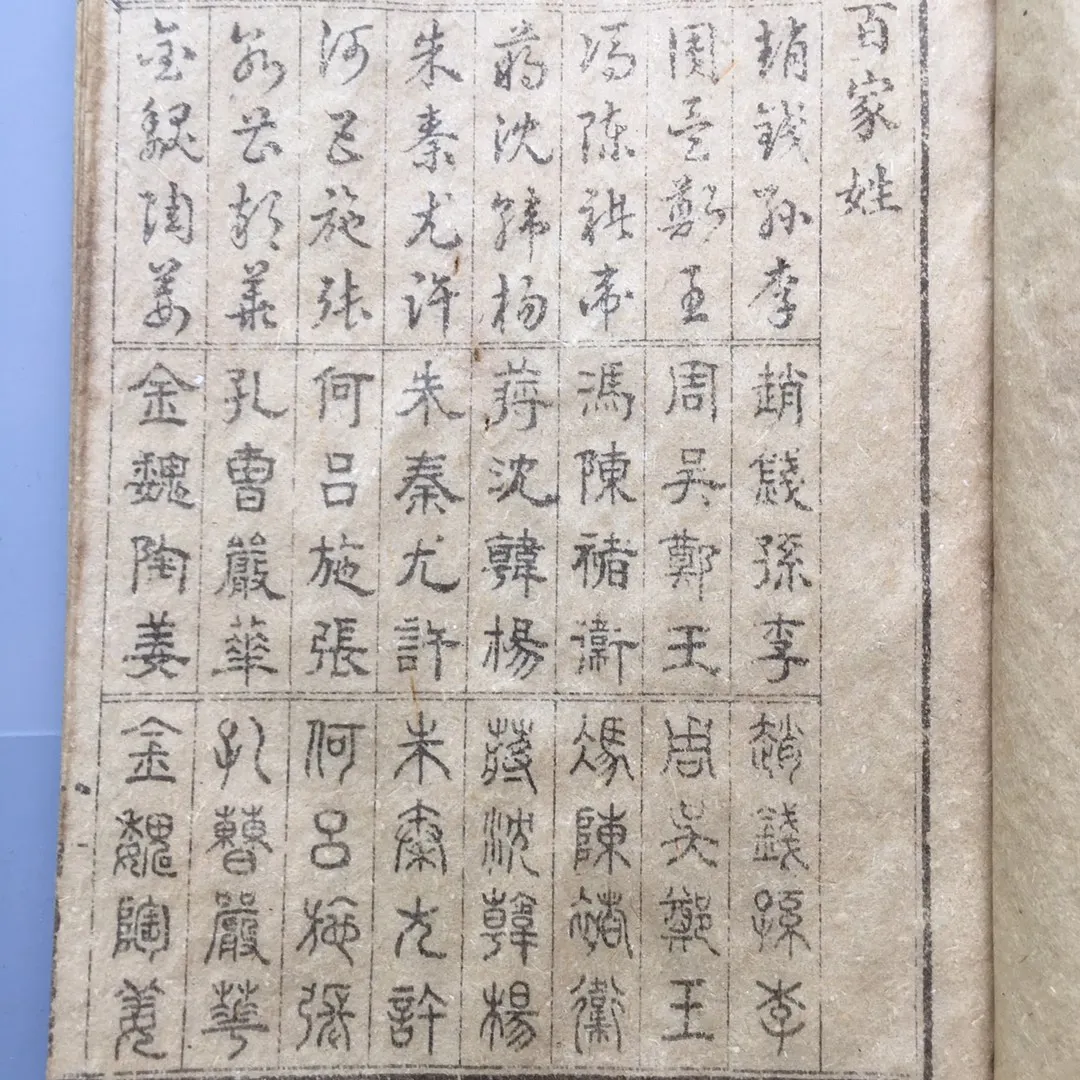 百家姓
趙錢孫李
周吳鄭王
馮陳褚衛
蔣沈韓楊
朱秦尤許
何呂施張
孔曹嚴華
金魏陶姜
趙錢孫李
周吳鄭王
馮陳褚衛
蔣沈韓楊
朱秦尤許
何呂施張
孔曹嚴華
金魏陶姜
趙錢孫李
周吳鄭王
馮陳褚衛
蔣沈韓楊
朱秦尤許
何呂施張
孔曹嚴華
金魏陶姜